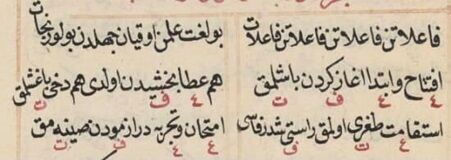 فاعلاتن فاعلاتن فاعلاتن فاعلات بو لغت علمن اوقیان جهلدن بولور نجات
افتتاح و ابتدا اغاز کردن باشلمق هم عطا بخشیدن اولدی هم دخی باغشلمق
ع ع ف ت ع ف ت
استقامت طغری اولمق راستی شد امتحان و تجربه در ازمودن صینه مق
ع ت ف ع ع ف ت